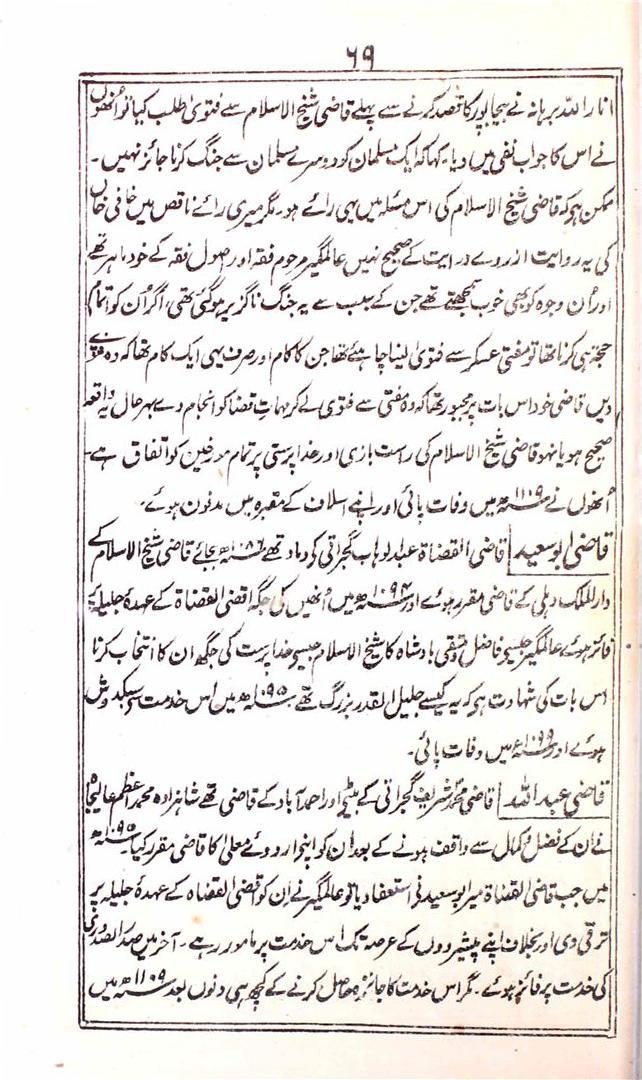 ۶۹
انار اللہ برہانہ نے بیجاپور کا قصد کرنے سے پہلے قاضی شیخ الاسلام سے فتویٰ طلب کیا تو اُنھوں
نے اس کا جواب نفی میں دیا۔ کہا کہ ایک مسلمان کو دوسرے مسلمان سے جنگ کرنا جائز نہیں۔
ممکن ہی کہ قاضی شیخ الاسلام کی اس مسئلہ میں یہی رائے ہو۔ مگر میری رائے ناقص میں خافی خاں
کی یہ روایت ازروے درایت کے صحیح نہیں عالمگیر مرحوم فقہ اور اصول فقہ کے خود ماہر تھے
اور اُن وجوہ کو بھی خوب سمجھتے تھے جن کے سبب سے یہ جنگ ناگزیر ہوگئی تھی، اگر اُن کو اتمام
حجۃ ہی کرنا تھا تو مفتی عسکر سے فتویٰ لینا چاہئے تھا جن کا کام اور صرف یہی ایک کام تھا کہ وہ فتوے
دیں قاضی خود اس بات پر مجبور تھا کہ وہ مفتی سے فتوی لے کر مہمات قضا کو انجام دے بہرحال یہ واقعہ
صحیح ہو یا نہو قاضی شیخ الاسلام کی راست بازی اور خدا پرستی پر تمام مورخین کو اتفاق ہے۔
اُنھوں نے ۱۱۰۹ھ میں وفات پائی اور اپنے اسلاف کے مقبرہ میں مدفون ہوئے۔
قاضی ابو سعید قاضی القضاۃ عبدالوہاب گجراتی کی داماد تھے ۱۰۸۶ھ بجائے قاضی شیخ الاسلام کے
دارالملک دہلی کے قاضی مقرر ہوئے اور ۱۰۹۴ھ میں اُنھیں کی جگہ اقضی القضاۃ کے عہدۂ جلیلہ پر
فائز ہوئے عالمگیر جیسی فاضل و متقی بادشاہ کا شیخ الاسلام جیسی خدا پرست کی جگھ ان کا انتخاب کرنا
اس بات کی شہادت ہی کہ یہ کیسے جلیل القدر بزرگ تھے ۱۰۹۵ھ میں اس خدمت سی سبکدوش
ہوے اور ۱۰۹۹ھ میں وفات پائی۔
قاضی عبداللہ قاضی محمد شریف گجراتی کے بیٹی اور احمد آباد کے قاضی تھے شاہزادہ محمد اعظم عالیجاہ
نے ان کے فضل و کمال سے واقف ہونے کے بعد ان کو اپنی اردوئے معلیٰ کا قاضی مقرر کیا۔ ۱۰۹۵ھ
میں جب قاضی القضاۃ میر ابو سعید نی استعفا دیا تو عالمگیر نے اِن کو اقضی القضاہ کے عہدۂ جلیلہ پر
ترقی دی اور بخلاف اپنے پیشیرووں کے عرصہ تک اس خدمت پر مامور رہے۔ آخر میں صدر الصدوری
کی خدمت پر فائز ہوئے۔ مگر اس خدمت کا جائزہ حاصل کرنے کے کچھ ہی دنوں بعد ۱۱۰۹ھ میں